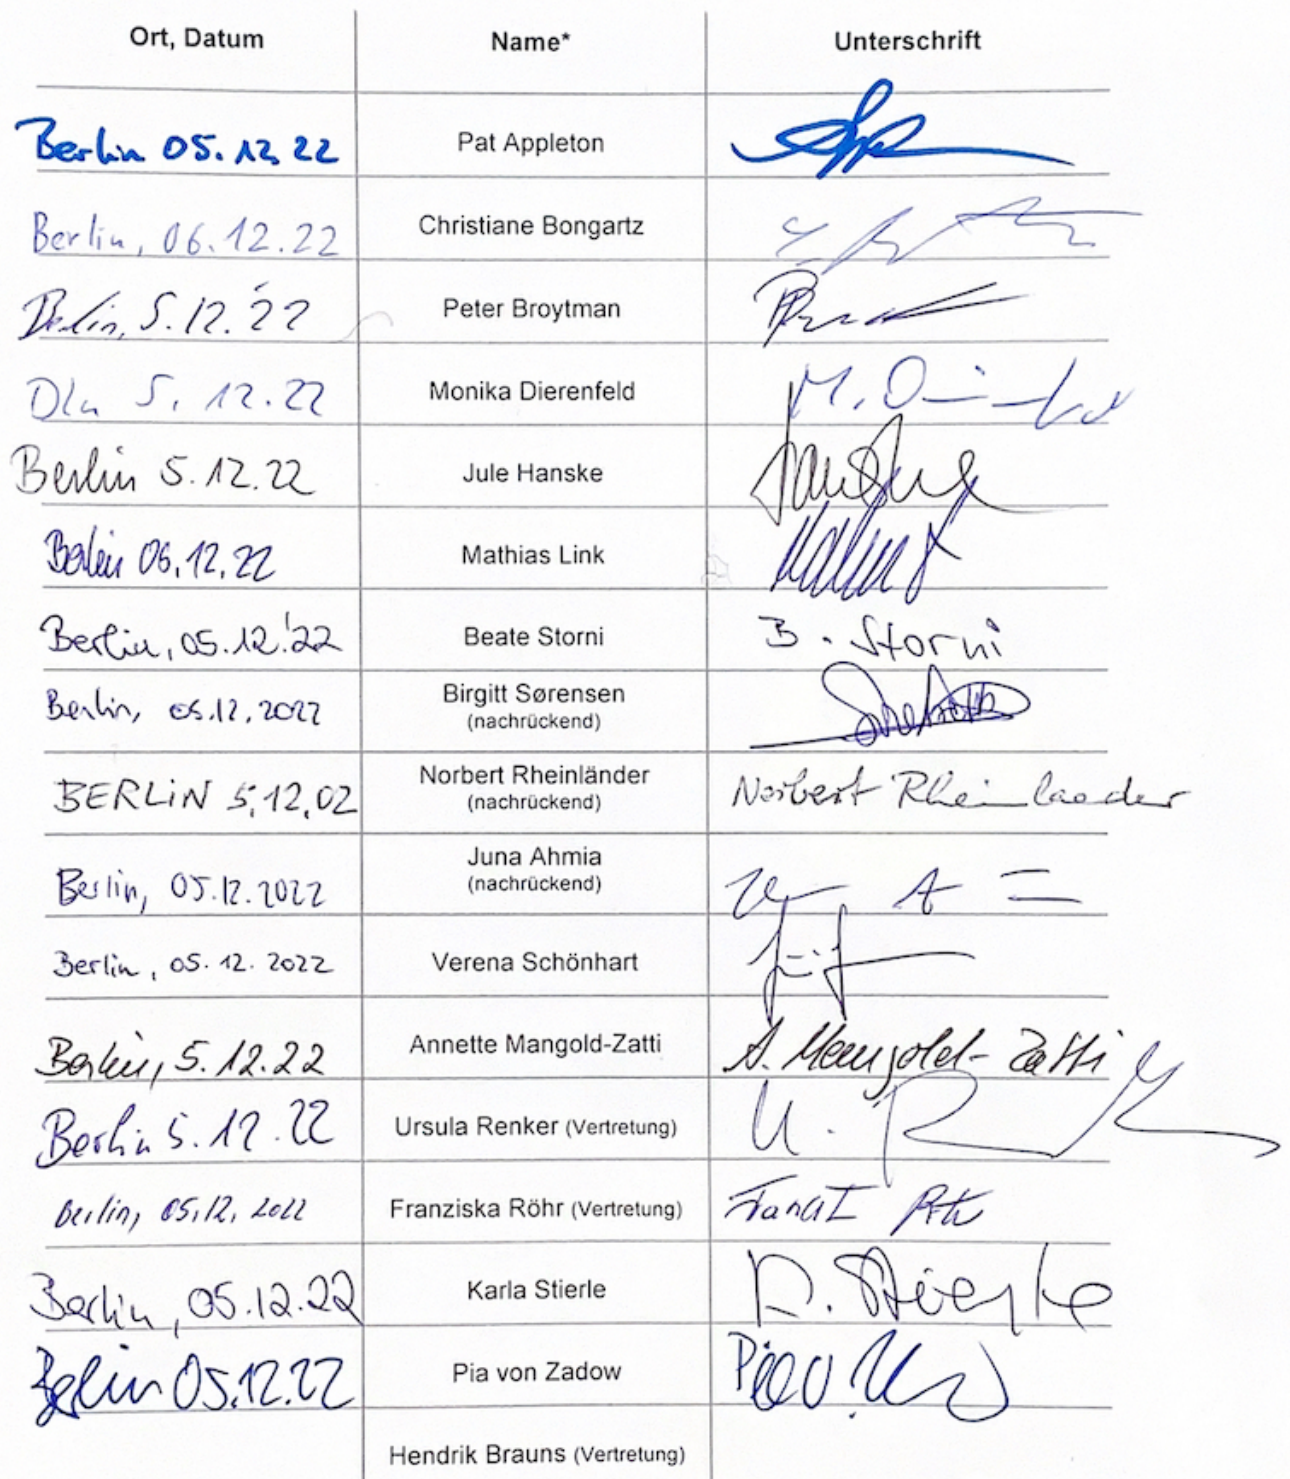 Ort, Datum Name* Unterschrift
Berlin 05.12 22 Pat Appleton
Berlin, 06.12.22 Christiane Bongartz
Berlin, 5.12.'22 Peter Broytman
Bln 5. 12.22 Monika Dierenfeld M.
Berlin 5.12.22 Jule Hanske
Berlin 06.12.22 Mathias Link
Berlin, 05.12.'22 Beate Storni B. Storni
Berlin, 05.12.2022 Birgitt Sørensen
(nachrückend)
BERLiN 5.12.02 Norbert Rheinländer Norbert Rheinlaender
(nachrückend)
Juna Ahmia
Berlin, 05.12.2022 (nachrückend)
Berlin, 05.12.2022 Verena Schönhart
Berlin, 5.12.22 Annette Mangold-Zatti A. Mangold-Zatti
Berlin 5.12.22 Ursula Renker (Vertretung) U.
Berlin, 05.12.2022 Franziska Röhr (Vertretung)
Berlin, 05.12.22 Karla Stierle K. Stierle
Berlin 05.12.22 Pia von Zadow Pia v.
Hendrik Brauns (Vertretung)